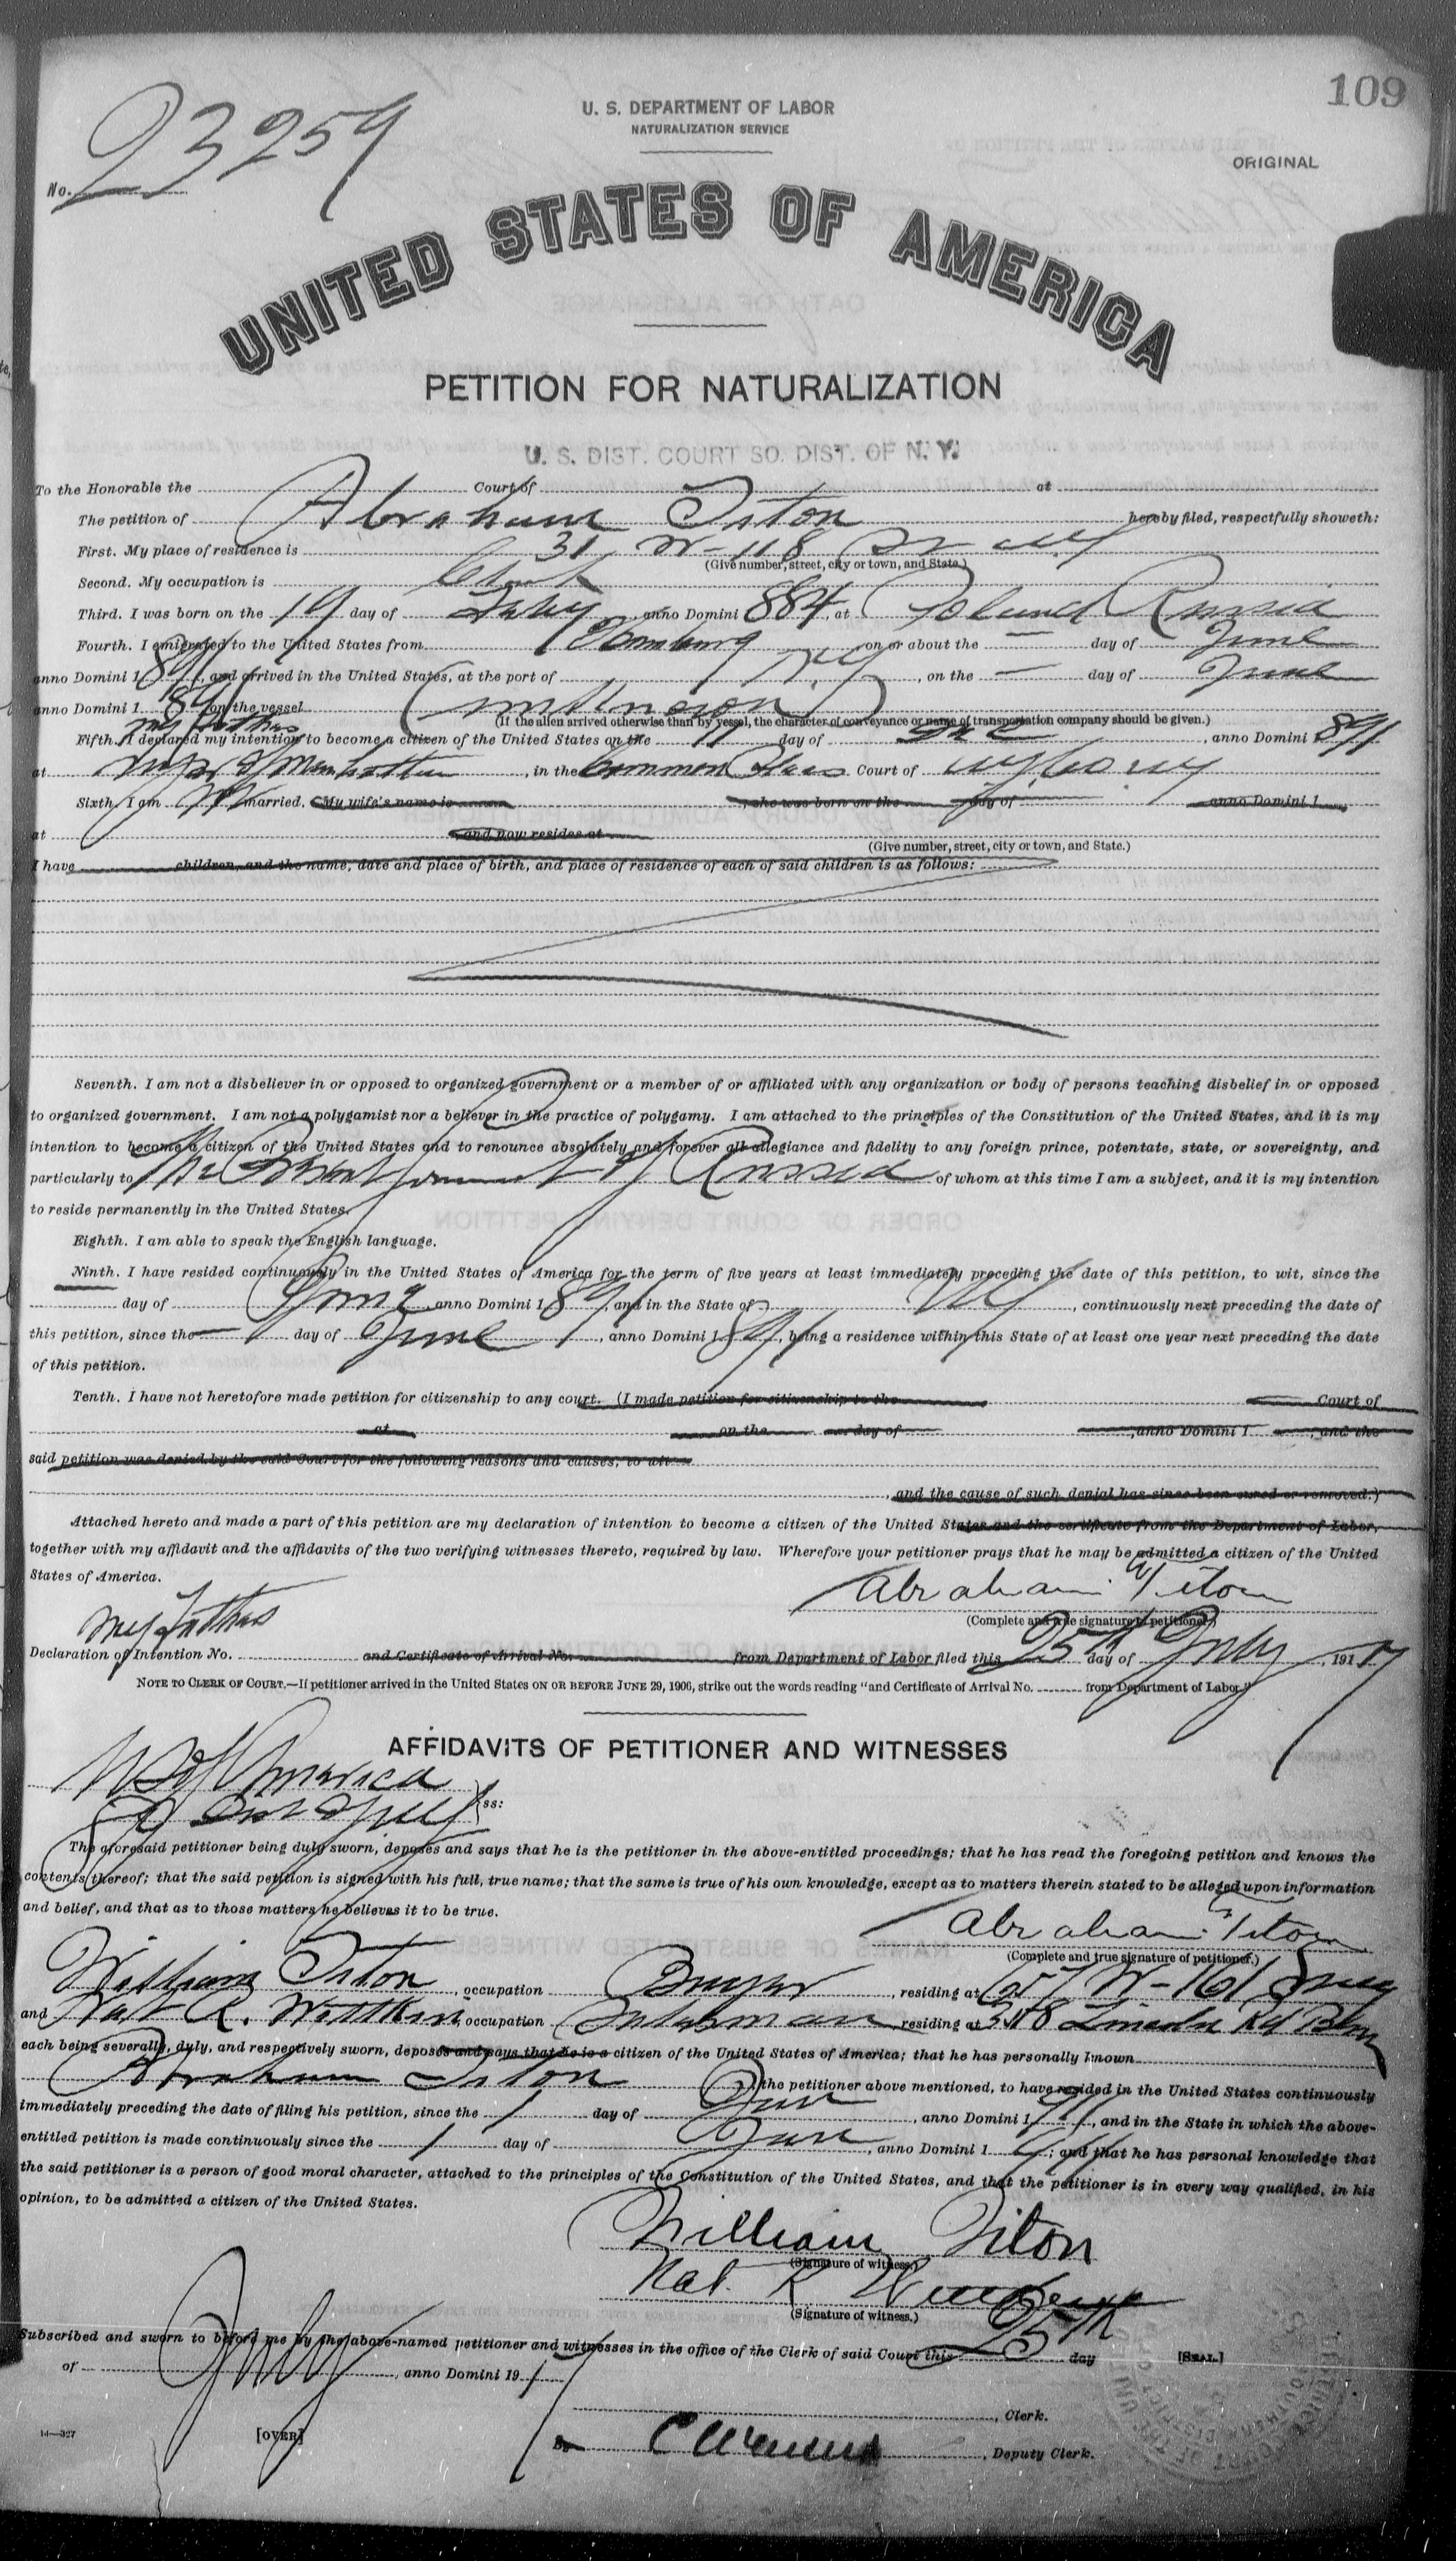 109
U. S. DEPARTMENT OF LABOR
NATURALIZATION SERVICE
ORIGINAL
No. 23259
UNITED STATES OF AMERICA
PETITION FOR NATURALIZATION
U. S. DIST. COURT SO. DIST. OF N. Y.
To the Honorable the Court of at
The petition of Abraham Titon hereby filed, respectfully showeth:
First. My place of residence is 31 W-118 St NY
(Give number, street, city or town, and State.)
Second. My occupation is Clerk
Third. I was born on the 19 day of anno Domini 1884, at Poland Russia
Fourth. I emigrated to the United States from Hamburg on or about the — day of June
anno Domini 1891, and arrived in the United States, at the port of N.Y, on the — day of June
anno Domini 1891 on the vessel (unknown)
(If the alien arrived otherwise than by vessel, the character of conveyance or name of transportation company should be given.)
my father
Fifth. I declared my intention to become a citizen of the United States on the 11 day of , anno Domini 1891
at Manhattan, in the Common Pleas Court of NY Co. NY
Sixth. I am married. My wife's name is , she was born on the day of anno Domini 1
at and now resides at
(Give number, street, city or town, and State.)
I have children, and the name, date and place of birth, and place of residence of each of said children is as follows:
Seventh. I am not a disbeliever in or opposed to organized government or a member of or affiliated with any organization or body of persons teaching disbelief in or opposed
to organized government. I am not a polygamist nor a believer in the practice of polygamy. I am attached to the principles of the Constitution of the United States, and it is my
intention to become a citizen of the United States and to renounce absolutely and forever all allegiance and fidelity to any foreign prince, potentate, state, or sovereignty, and
particularly to The Government of Russia of whom at this time I am a subject, and it is my intention
to reside permanently in the United States.
Eighth. I am able to speak the English language.
Ninth. I have resided continuously in the United States of America for the term of five years at least immediately preceding the date of this petition, to wit, since the
day of June anno Domini 1891, and in the State of NY, continuously next preceding the date of
this petition, since the — day of June, anno Domini 1891, being a residence within this State of at least one year next preceding the date
of this petition.
Tenth. I have not heretofore made petition for citizenship to any court. (I made petition for citizenship to the Court of
at on the day of , anno Domini 1 , and the
said petition was denied by the said Court for the following reasons and causes, to wit
, and the cause of such denial has since been cured or removed.)
Attached hereto and made a part of this petition are my declaration of intention to become a citizen of the United States and the certificate from the Department of Labor,
together with my affidavit and the affidavits of the two verifying witnesses thereto, required by law. Wherefore your petitioner prays that he may be admitted a citizen of the United
States of America.
Abraham Titon
(Complete and true signature of petitioner.)
my father
Declaration of Intention No. and Certificate of Arrival No. from Department of Labor filed this 25th day of July, 1917
NOTE TO CLERK OF COURT.—If petitioner arrived in the United States ON OR BEFORE JUNE 29, 1906, strike out the words reading "and Certificate of Arrival No. from Department of Labor."
AFFIDAVITS OF PETITIONER AND WITNESSES
US of America
So Dist of NY ss:
The aforesaid petitioner being duly sworn, deposes and says that he is the petitioner in the above-entitled proceedings; that he has read the foregoing petition and knows the
contents thereof; that the said petition is signed with his full, true name; that the same is true of his own knowledge, except as to matters therein stated to be alleged upon information
and belief, and that as to those matters he believes it to be true.
Abraham Titon
(Complete and true signature of petitioner.)
William Titon, occupation Buyer, residing at 657 W-161
and Nat R. occupation Salesman, residing at 318 Lincoln Rd Bkn
each being severally, duly, and respectively sworn, deposes and says that he is a citizen of the United States of America; that he has personally known
Abraham Titon, the petitioner above mentioned, to have resided in the United States continuously
immediately preceding the date of filing his petition, since the 1 day of Jan, anno Domini 1911, and in the State in which the above-
entitled petition is made continuously since the 1 day of Jan, anno Domini 1911; and that he has personal knowledge that
the said petitioner is a person of good moral character, attached to the principles of the Constitution of the United States, and that the petitioner is in every way qualified, in his
opinion, to be admitted a citizen of the United States.
William Titon
(Signature of witness.)
Nat. R
(Signature of witness.)
Subscribed and sworn to before me by the above-named petitioner and witnesses in the office of the Clerk of said Court this 25th day [SEAL.]
of July, anno Domini 1917
, Clerk.
14—327 [OVER] By , Deputy Clerk.